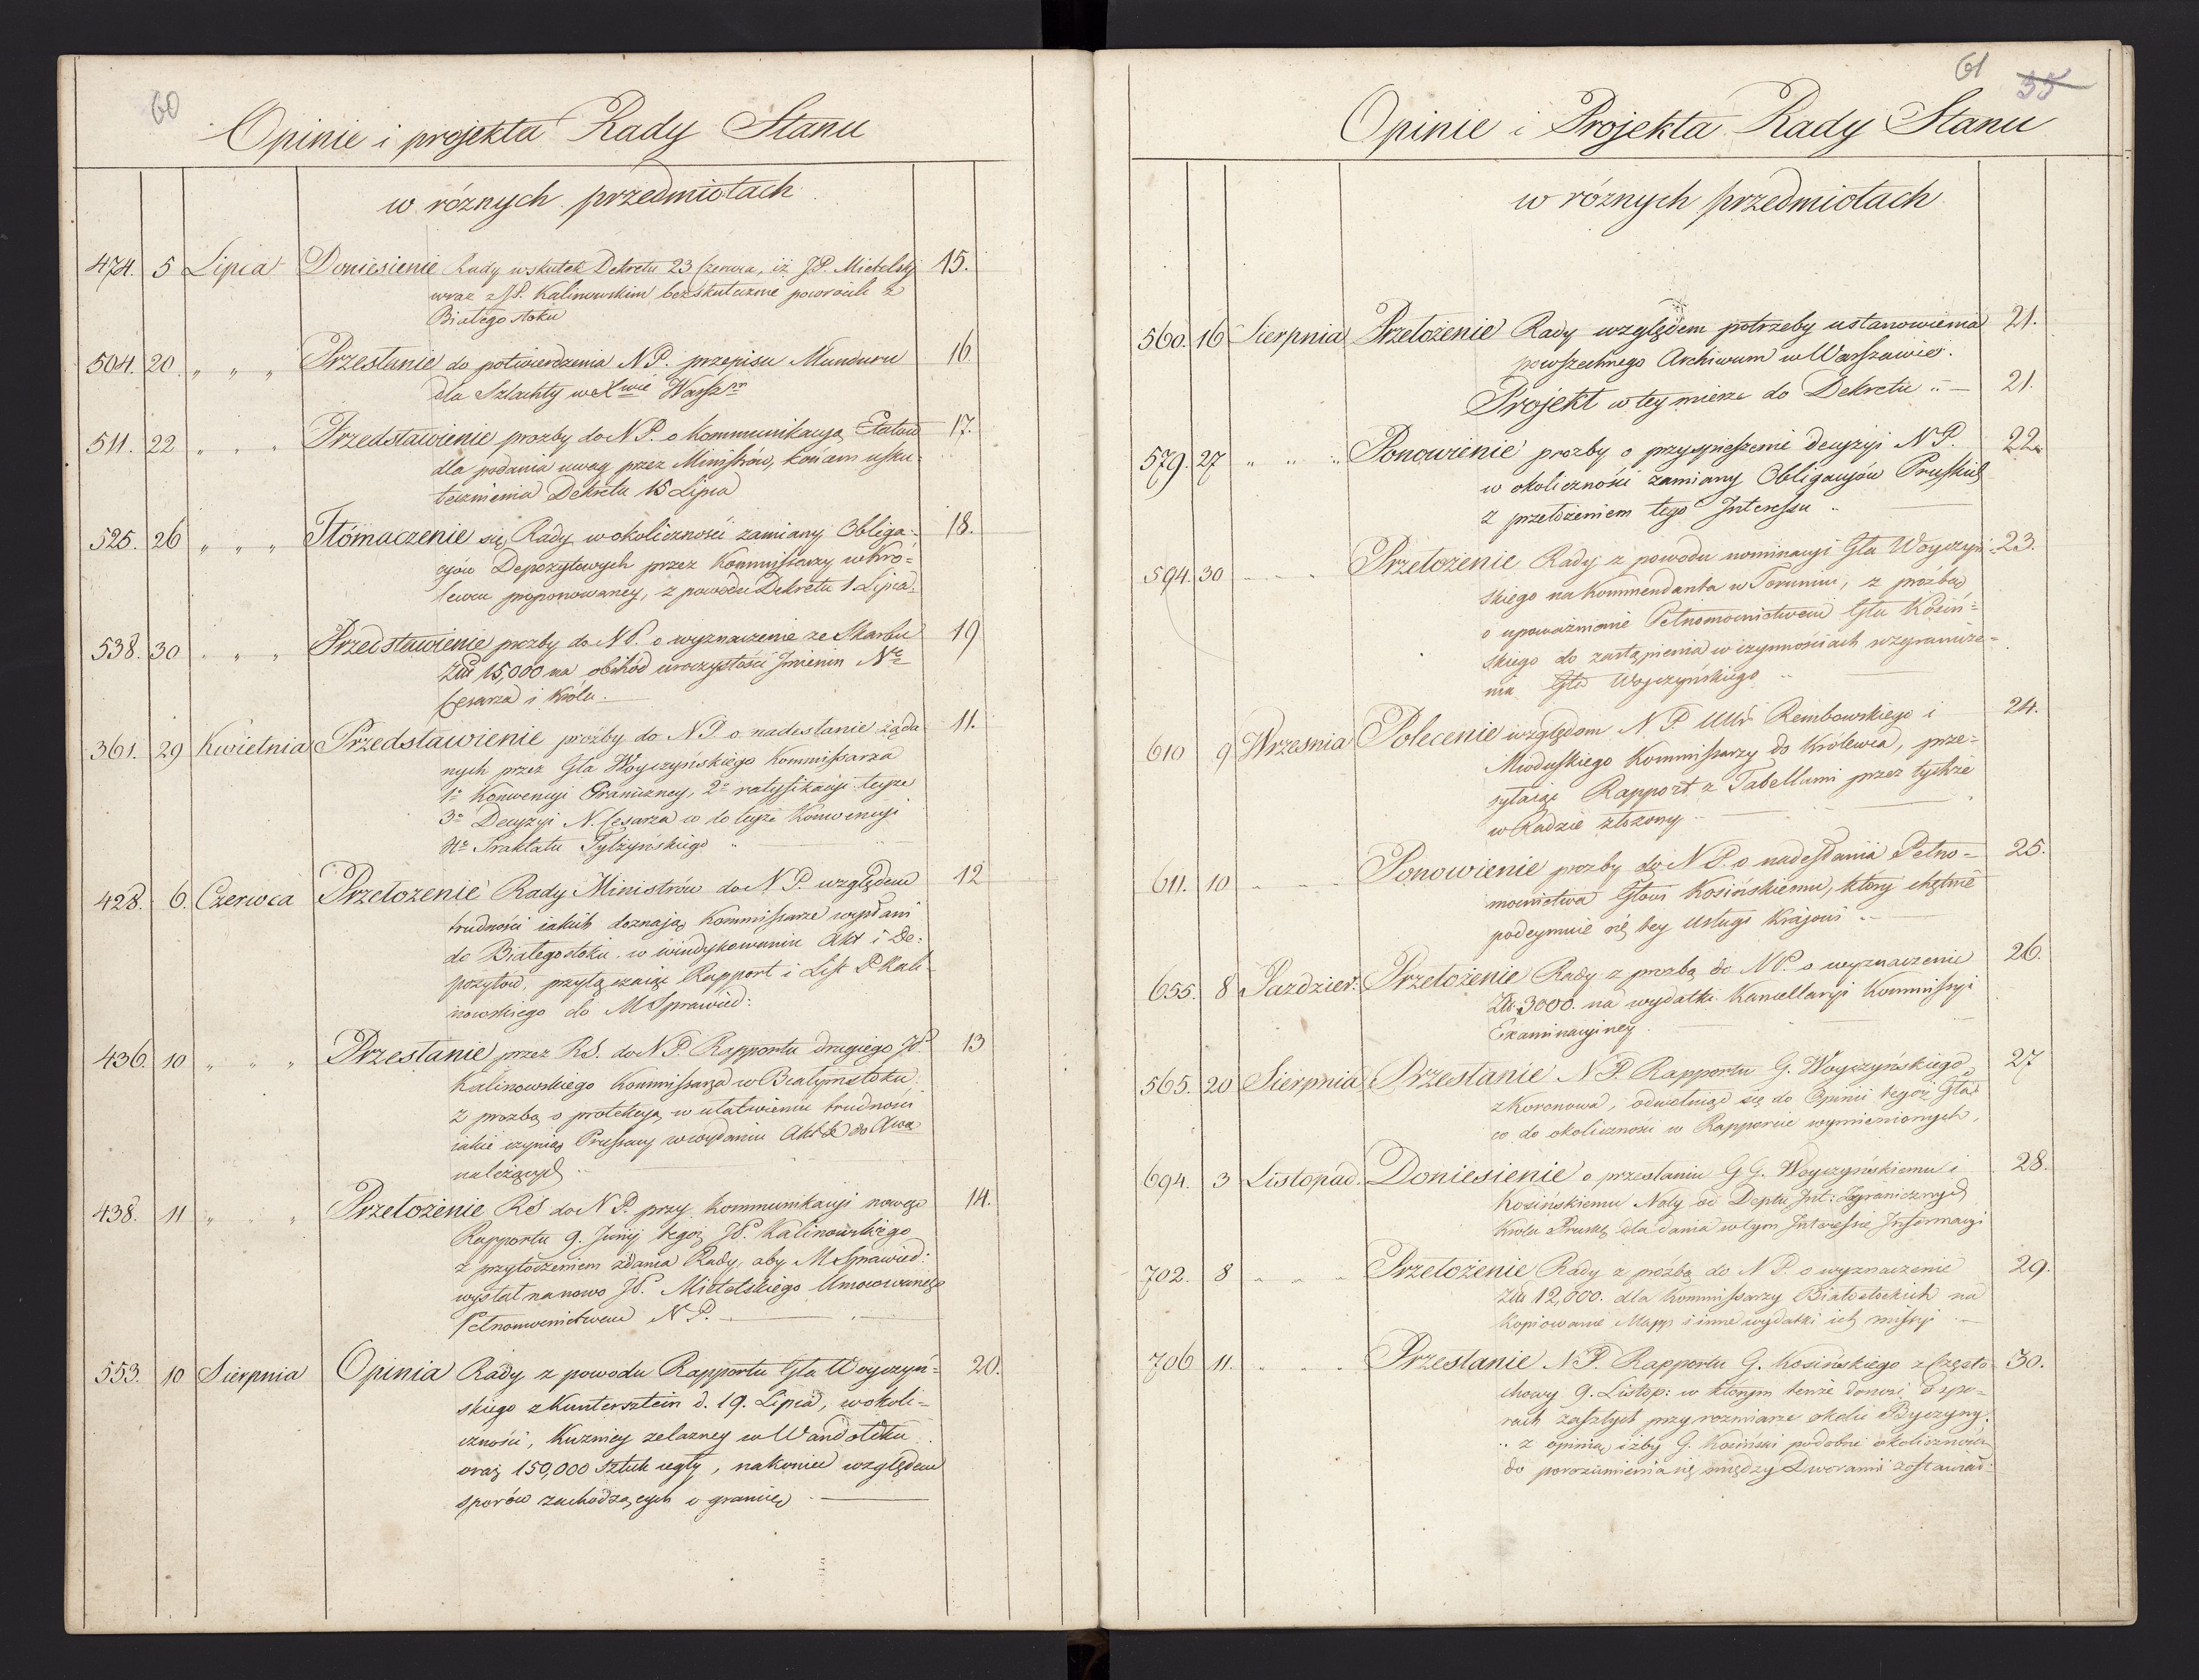 60
Opinie i projekta Rady Stanu
w różnych przedmiotach
474. 5 Lipca Doniesienie Rady wskutek Dekretu 23 Czerwca, iż JP. Mietelski 15.
wraz z JP. Kalinowskim bezskutecznie powrócili z
Białegostoku
504. 20 " " " Przesłanie do potwierdzenia N.P. przepisu Munduru 16
dla Szlachty w Xwie Warsz
511. 22 " " " Przedstawienie prozby do N.P. o kommunikacyą Etatow 17.
dla podania uwag przez Ministrów, końcem usku-
tecznienia Dekretu 15 Lipca
525. 26 " " " Tłómaczenie się Rady w okoliczności zamiany Obliga- 18.
cyów Depozytowych przez Kommissarzy w Kró-
lewcu proponowaney, z powodu Dekretu 1 Lipca.
538. 30 " " " Przedstawienie prozby do N.P. o wyznaczenie ze Skarbu 19
Złł 15,000 na obchód uroczystości Jmienin
Cesarza i Króla.
361. 29 Kwietnia Przedstawienie prozby do N.P. o nadesłanie żąda- 11.
nych przez Gła Woyczyńskiego Kommissarza
1° Konwencyi Graniczney, 2° ratyfikacyi teyże
3° Decyzyi N. Cesarza co do teyże Konwencyi
4° Traktatu Tylżyńskiego "
428. 6. Czerwca Przełożenie Rady Ministrów do N.P. względem 12
trudności iakich doznają Kommissarze wysłani
do Białegostoku w windykowaniu Akt i De-
pozytow, przyłączaiąc Rapport i List P. Kali-
nowskiego do M. Sprawied:
436. 10 " " " Przesłanie przez R.S. do N.P. Rapportu drugiego JP. 13
Kalinowskiego Kommissarza w Białymstoku
z prozbą o protekcyą w ułatwieniu trudności
iakie czynią Prussacy w wydaniu Akt do Xwa
należących
438. 11 " " " Przełożenie RS do N.P. przy kommunikacyi nowego 14.
Rapportu 9. Junij tegoż JP. Kalinowskiego
z przytoczeniem zdania Rady, aby M. Sprawied:
wysłał na nowo JP. Mietelskiego Umocowanego
Pełnomocnictwem N.P.
553. 10 Sierpnia Opinia Rady z powodu Rapportu Gła Woyczyń- 20.
skiego z Kuntersztein d. 19. Lipca, w okoli-
czności, Kuznicy zelazney w Wandotku
oraz 150,000 Sztuk cegły, nakoniec względem
sporów zachodzących o granicę
61 35
Opinie i Projekta Rady Stanu
w różnych przedmiotach
560. 16 Sierpnia Przełożenie Rady względem potrzeby ustanowienia 21.
powszechnego Archiwum w Warszawie.
Projekt w tey mierze do Dekretu 21.
579. 27 " " " Ponowienie prozby o przyspieszenie decyzyi N.P. 22.
w okoliczności zamiany Obligacyów Pruskich
z przełożeniem tego Interessu
594. 30 Przełożenie Rady z powodu nominacyi Gła Woyczyń- 23.
skiego na Kommendanta w Toruniu, z prożbą
o upoważnienie Pełnomocnictwem Gła Kosiń-
skiego do zastąpienia w czynnościach rozgranicze-
nia Gła Woyczyńskiego
610 9 Wrzesnia Polecenie względom N.P. Rembowskiego i 24.
Mioduskiego Kommissarzy do Królewca, prze-
syłaiąc Rapport z Tabellami przez tychże
w Radzie złożony
611. 10 Ponowienie prozby do N.P. o nadesłania Pełno- 25.
mocnictwa Głowi Kosińskiemu, który chętnie
podeymuie się tey usługi Kraiowi
655. 8 Pazdzier: Przełożenie Rady z prozbą do N.P. o wyznaczenie 26.
Złł 3000. na wydatki Kancellaryi Kommissyi
Examinacyiney.
565. 20 Sierpnia Przesłanie N.P. Rapportu G. Woyczyńskiego 27
z Koronowa, odwołuiąc się do Opinii tegoż Gła
co do okoliczności w Rapporcie wymienionych,
694. 3 Listopad. Doniesienie o przesłaniu GG. Woyczyńskiemu i 28.
Kosińskiemu Noty od Deptu Int: Zagranicznych
Króla Prusk. dla dania w tym Interessie Informacyi
702. 8 " " " Przełożenie Rady z prożbą do N.P. o wyznaczenie 29.
Złł 12,000. dla Kommissarzy Białostockich na
kopiowanie Mapp i inne wydatki ich missyi
706 11. Przesłanie N.P. Rapportu G. Kosińskiego z Często- 30.
chowy 9. Listop: w którym tenże donosi o spo-
rach zaszłych przy rozmiarze okolic Byczyny.
z opinią iżby G. Kosiński podobne okoliczności
do porozumienia się między Dworami zostawiał: